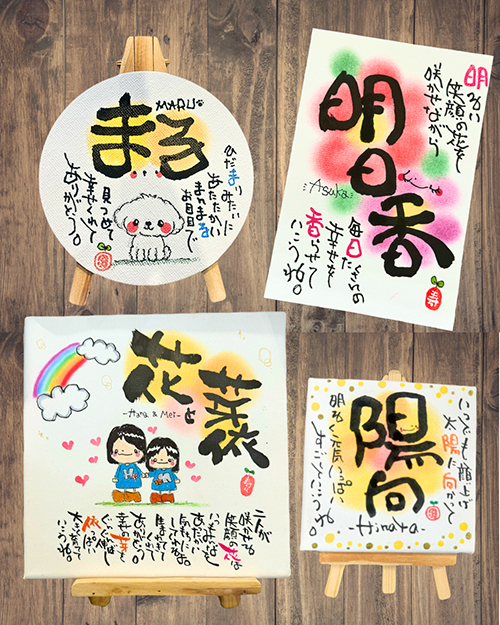 まる
MARU
ひだまりみたいに
あたたかい
まんまる
お目目で
見つめて
幸せくれて
ありがとう。
明日香
Asuka
明るい
笑顔の花を
咲かせながら
毎日たくさんの
幸せを
香らせて
いこうね。
寿
花と芽依
-Hana & Mei-
二人が
咲かせる
笑顔の花は
あたたかい
ありがとう。
幸せの芽を
ぐんぐん伸ばし
大きくなって
いこうね。
陽向
-Hinata-
いつでも顔上げ
太陽に向かって
明るい元気いっぱい